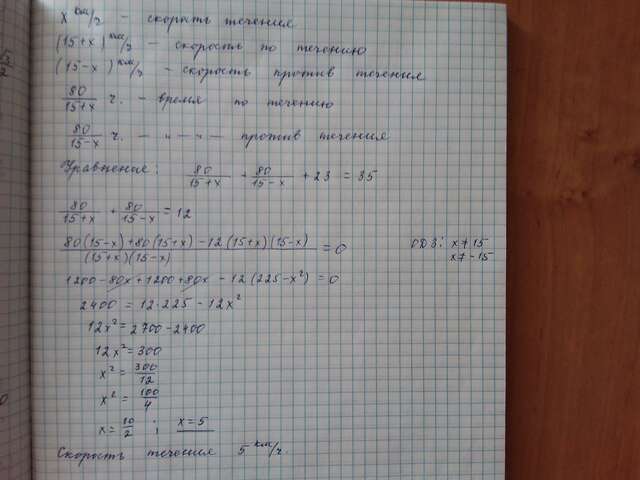 x км/ч — скорость течения
(15+x) км/ч — скорость по течению
(15-x) км/ч — скорость против течения
80/(15+x) ч. — время по течению
80/(15-x) ч. — " — " — против течения
Уравнение: 80/(15+x) + 80/(15-x) + 23 = 35
80/(15+x) + 80/(15-x) = 12
(80(15-x) + 80(15+x) - 12(15+x)(15-x))/((15+x)(15-x)) = 0 ОДЗ: x≠15
x≠-15
1200 - 80x + 1200 + 80x - 12(225-x²) = 0
2400 = 12·225 - 12x²
12x² = 2700 - 2400
12x² = 300
x² = 300/12
x² = 100/4
x = 10/2 ; x = 5
Скорость течения 5 км/ч.